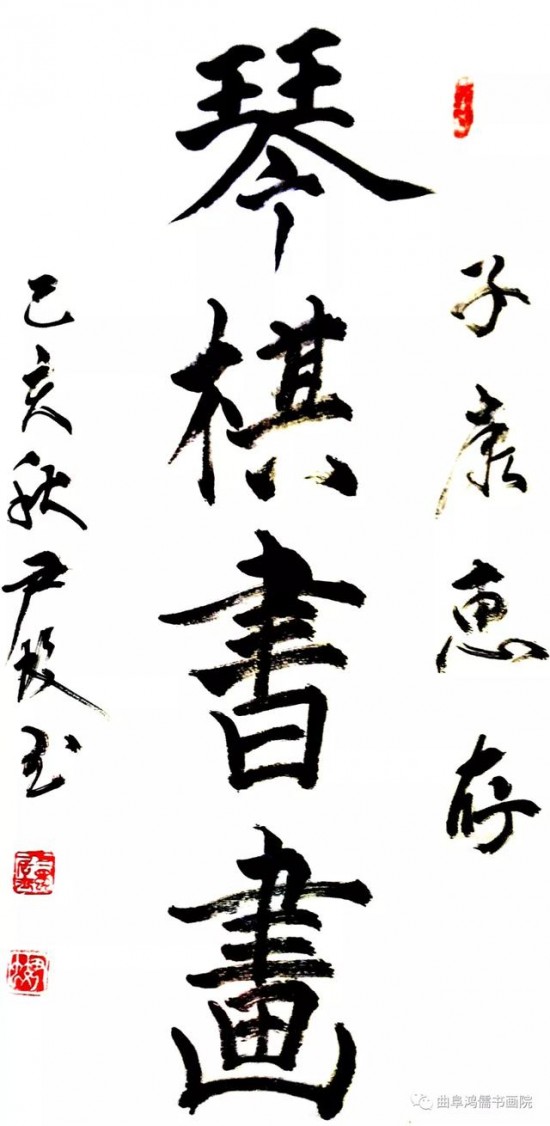 子康惠存
琴棋書畫
己亥秋尹枝玉
曲阜鸿儒书画院